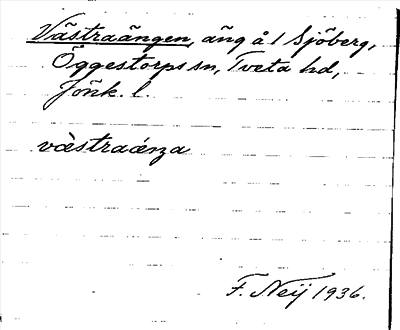 Västraängen, äng å 1 Sjöberg,
Öggestorps sn, Tveta hd,
Jönk. l.
væ̀straǽŋa
F. Neij 1936.